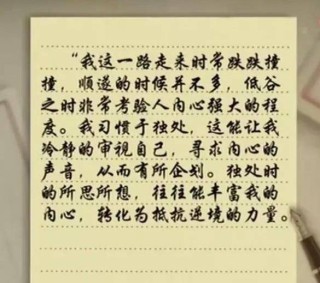 “我这一路走来时常跌跌撞
撞，顺遂的时候并不多，低谷
之时非常考验人内心强大的程
度。我习惯于独处，这能让我
冷静的审视自己，寻求内心的
声音，从而有所企划。独处时
的所思所想，往往能丰富我的
内心，转化为抵抗逆境的力量。